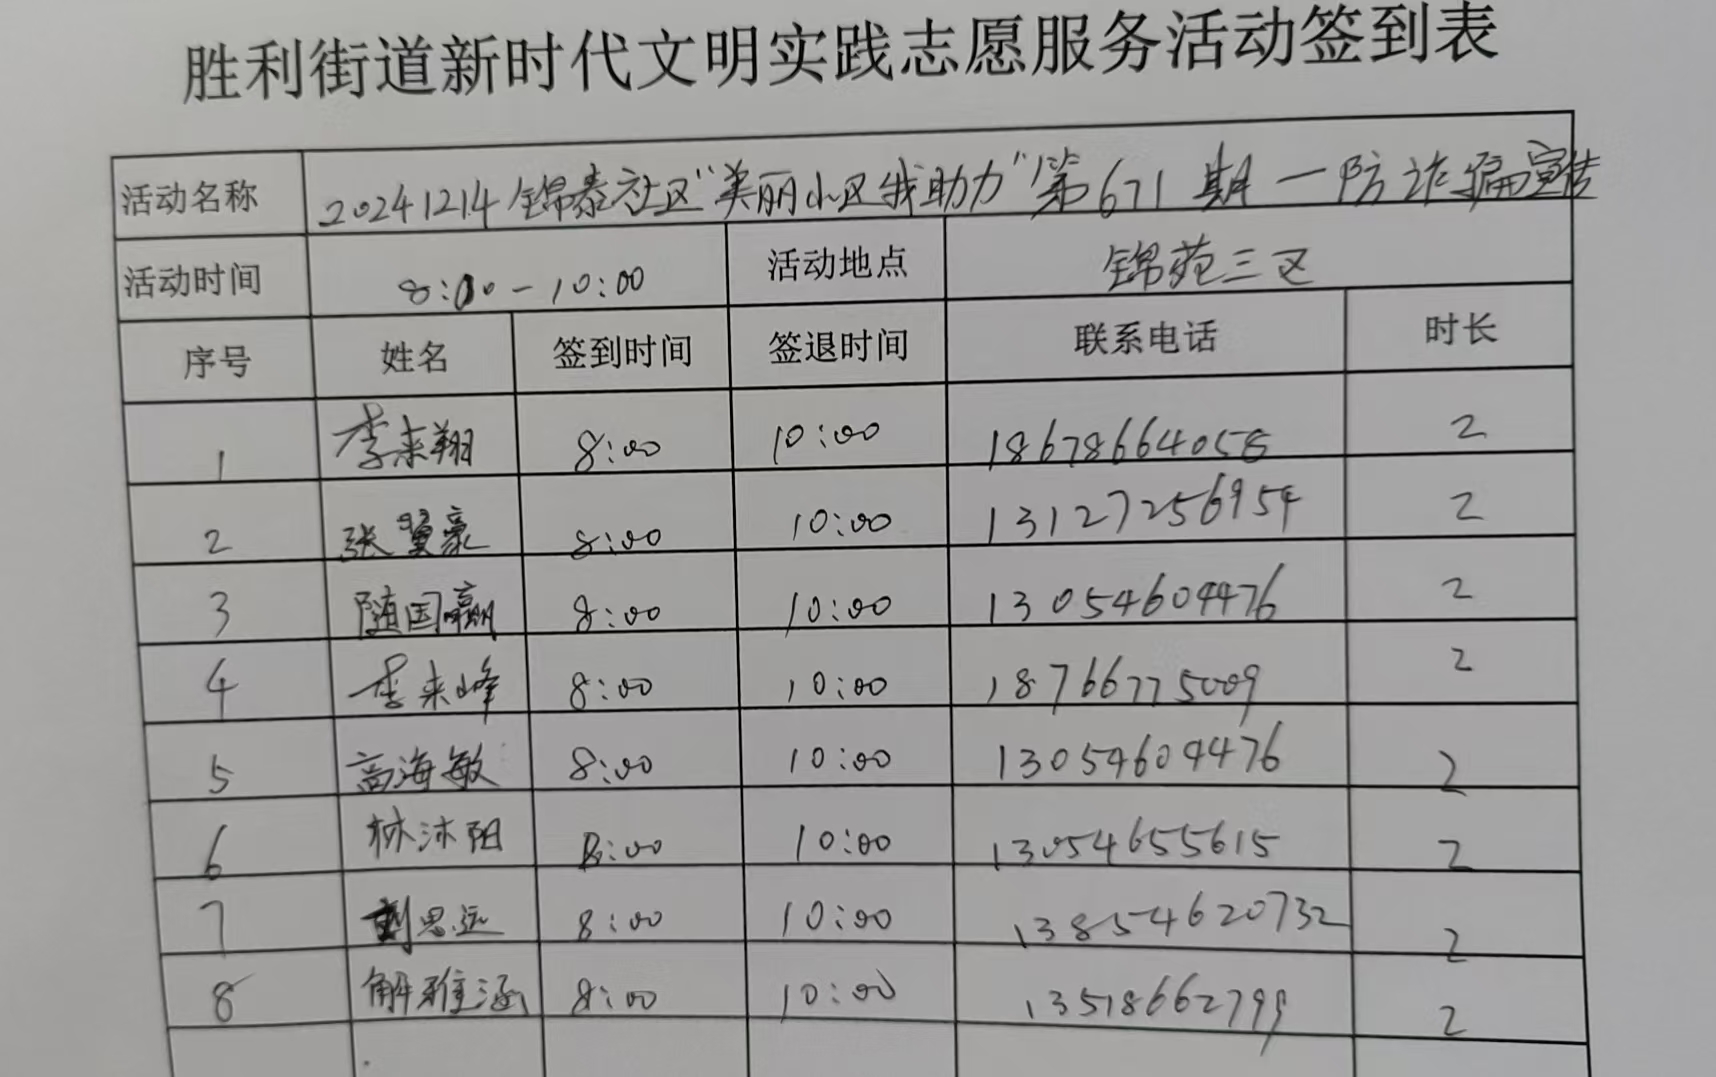 胜利街道新时代文明实践志愿服务活动签到表
活动名称 20241214锦泰社区“美丽小区我助力”第671期一防诈骗宣传
活动时间 8:00-10:00 活动地点 锦苑三区
序号 姓名 签到时间 签退时间 联系电话 时长
1 李来翔 8:00 10:00 18678664058 2
2 张翼豪 8:00 10:00 13127256954 2
3 随国赢 8:00 10:00 13054604476 2
4 李来峰 8:00 10:00 18766775009 2
5 高海敏 8:00 10:00 13054604476 2
6 林沐阳 8:00 10:00 13054655615 2
7 刘思远 8:00 10:00 13854620732 2
8 解雅涵 8:00 10:00 13518662799 2